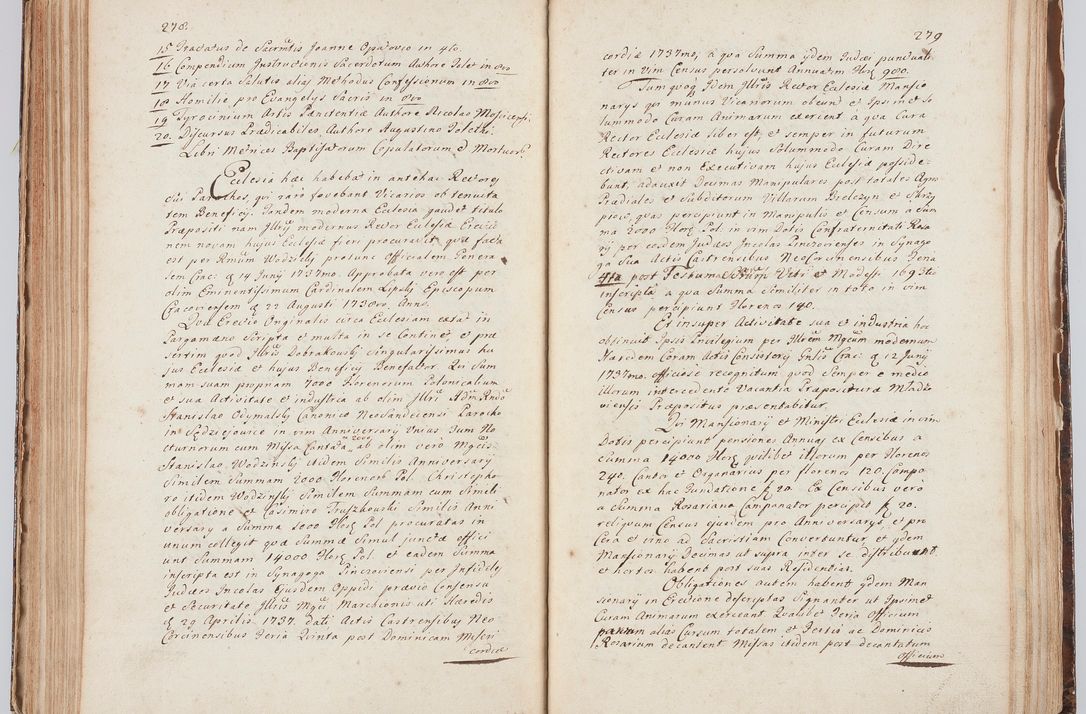 278.
15 Tractatus de Sacrmtis Joanne Opatovio in 4to.
16 Compendium Instructionis Sacerdotum Authore Tolet in 8vo
17 Via certa Salutis alias Methodus Confessionum in 8vo
18 Homiliæ pro Evangelys Sacris in 8vo
19 Tyrocinium Artis Pænitentiæ Authore Nicolao Moscicensi
20. Discursus Prædicabiles, Authore Augustino
Libri Metrices Baptisatorum Copulatorum et Mortuorũ.
Ecclesia hæc habebat in antehac Rectores
suos Parochos, qui raro fovebant Vicarios ob tenuita
tem Beneficy. Tandem moderna Ecclesia gaudet titulo
Præpositi nam Jllris modernus Rector Ecclesiæ Erectio
nem novam hujus Ecclesiæ fieri procuravit, quæ facta
est per Rmum Wodzicki protunc officialem Genera
lem Crac: d 14 Juny 1737mo. Approbata vero est per
olim Eminentissimum Cardinalem Lipski Episcopum
Cracoviensem d 22 Augusti 1738vo. Anno.
Quæ Erectio Originalis circa Ecclesiam extat in
Pargameno Scripta et multa in se Continet, et præ
sertim quod Jllris Dobrakowski singularissimus hu
jus Ecclesiæ et hujus Beneficy Benefactor. Qui Sum
mam suam propriam 7000 Florenorum Polonicalium
et sua Activitate et industria ab olim Jllri Admu Rndo
Stanislao Odymalski Canonico NeoSandeciensi Parocho
in Sędziejovice in vim Anniversary Unius cum No
cturnorum cum Missa Cantata 2000 ab olim vero Mgco
Stanislao Wodzinski itidem Similis Anniversary
Similem Summam 2000 Florenorũ Pol. Christopho
ro itidem Wodzinski Similem Summam cum Simili
obligatione et Casimiro Truszkowski Similis Anni
versary a Summa 1000 Flor: Pol procuratas in
unum collegit quæ Summæ Simul junctæ effici
unt Summam 14000 Flor: Pol. et eadem Summa
inscripta est in Synagoga Pinczoviensi per Infideles
Judæos Incolas Ejusdem Oppidi prævio Consensu
et Securitate Jllris Mgci Marchionis uti Hæredis
d 29 Aprilis 1737. dati Actis Castrensibus Neo
Corcinensibus Feria Quinta post Dominicam Miseri
cordiæ
279
cordiæ 1737mo, a qua Summa ijdem Judæi punctuali
ter in Vim Census persolvunt Annuatim Flor: 980.
Sumquoq Idem Jllris Rector Ecclesiæ Mansio
narys qui munus Vicariorum obeunt et Ipsimet So
lummodo Curam Animarum exercent a qua Cura
Rector Ecclesiæ liber est, et semper in futurum
Rectores Ecclesiæ hujus Solummodo Curam Dire
ctivam et non Executivam hujus Ecclesiæ posside
bunt, adauxit Decimas Manipulares post totales Agros
Prædiales et Subditorum Villarum Bielczyn et Skrzy
piow, quas percipiunt in Manipulis et Censum a Sum
ma 2000 Flor: Pol. in vim Dotis Confraternitati Rosa
ry per eosdem Judæos Incolas Pinczovienses in Synago
ga Sua Actis Castrensibus NeoCorcinensibus Feria
4ta post Festum Sctorum Viti et Modesti 1693tio
inscripta a qua Summa Similiter in toto in vim
Census percipiunt Florenos 140.
Et insuper Activitate sua et industria hoc
obtinuit Ipsis Privilegium per Jllrem Mgcum modernum
Hæredem Coram Actis Consistory Gnlis Crac: d 12 Juny
1737mo. officiose recognitum quod Semper e medio
illorum intercedente Vacantia Præpositura Mładz
viensis Præpositus præsentabitur.
Qui Mansionary et Ministri Ecclesiæ in vim
Dotis percipiunt pensiones Annuas ex Censibus a
Summa 14000 Flor: quilibet illorum per Florenos
240. Cantor et Organarius per florenos 120. Campa
nator ex hac Fundatione f 20. Ex Censibus vero
a Summa Rosariana Campanator percipit f 20.
reliquum Census ejusdem pro Anniversarys, et pro
Cera et vino ad Sacristiam Convertuntur et ijdem
Mansionary Decimas ut supra inter se distribuunt
et hortos habent post suas Residentias.
Obligationes autem habent ijdem Man
sionary in Erectione descriptas Signanter ut Ipsimet
Curam Animarum exerceant Qualibet Feria Officium
parvum alias Cursum totalem et Festis ac Dominicis
Rosarium decantent Missas itidem post decantatum
Officium